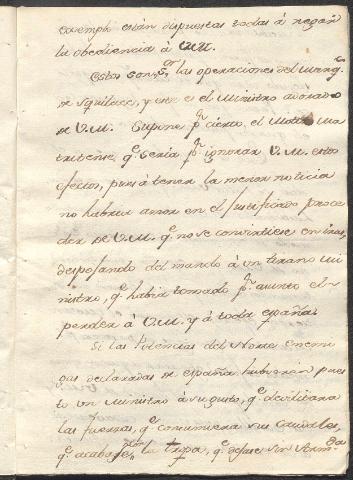 exemplo están dispuestas todas á negar
la obediencia á V.M.
Estos son S.or las operaciones del Marq.s
de Squilace, y este es el Ministro adorado
de V.M. Supone p.r cierto el Motin Ma
tritense, q.e seria p.r ignorar V.M. estos
efectos, pues á tener la menor noticia
no habria amor en el justificado proce
der de V.M. q.e no se convirtiese en iras,
desposando del mando á un tirano mi
nistro, q.e habia tomado p.r asunto el
perder á V.M. y á toda españa.
Si las Potencias del Norte enemi
gas declaradas de españa hubieran pues
to un Ministro á su gusto, q.e devilitara
las fuerzas, q.e consumiera sus caudales,
q.e acabase con la tropa, q.e dejase sin Arma.da